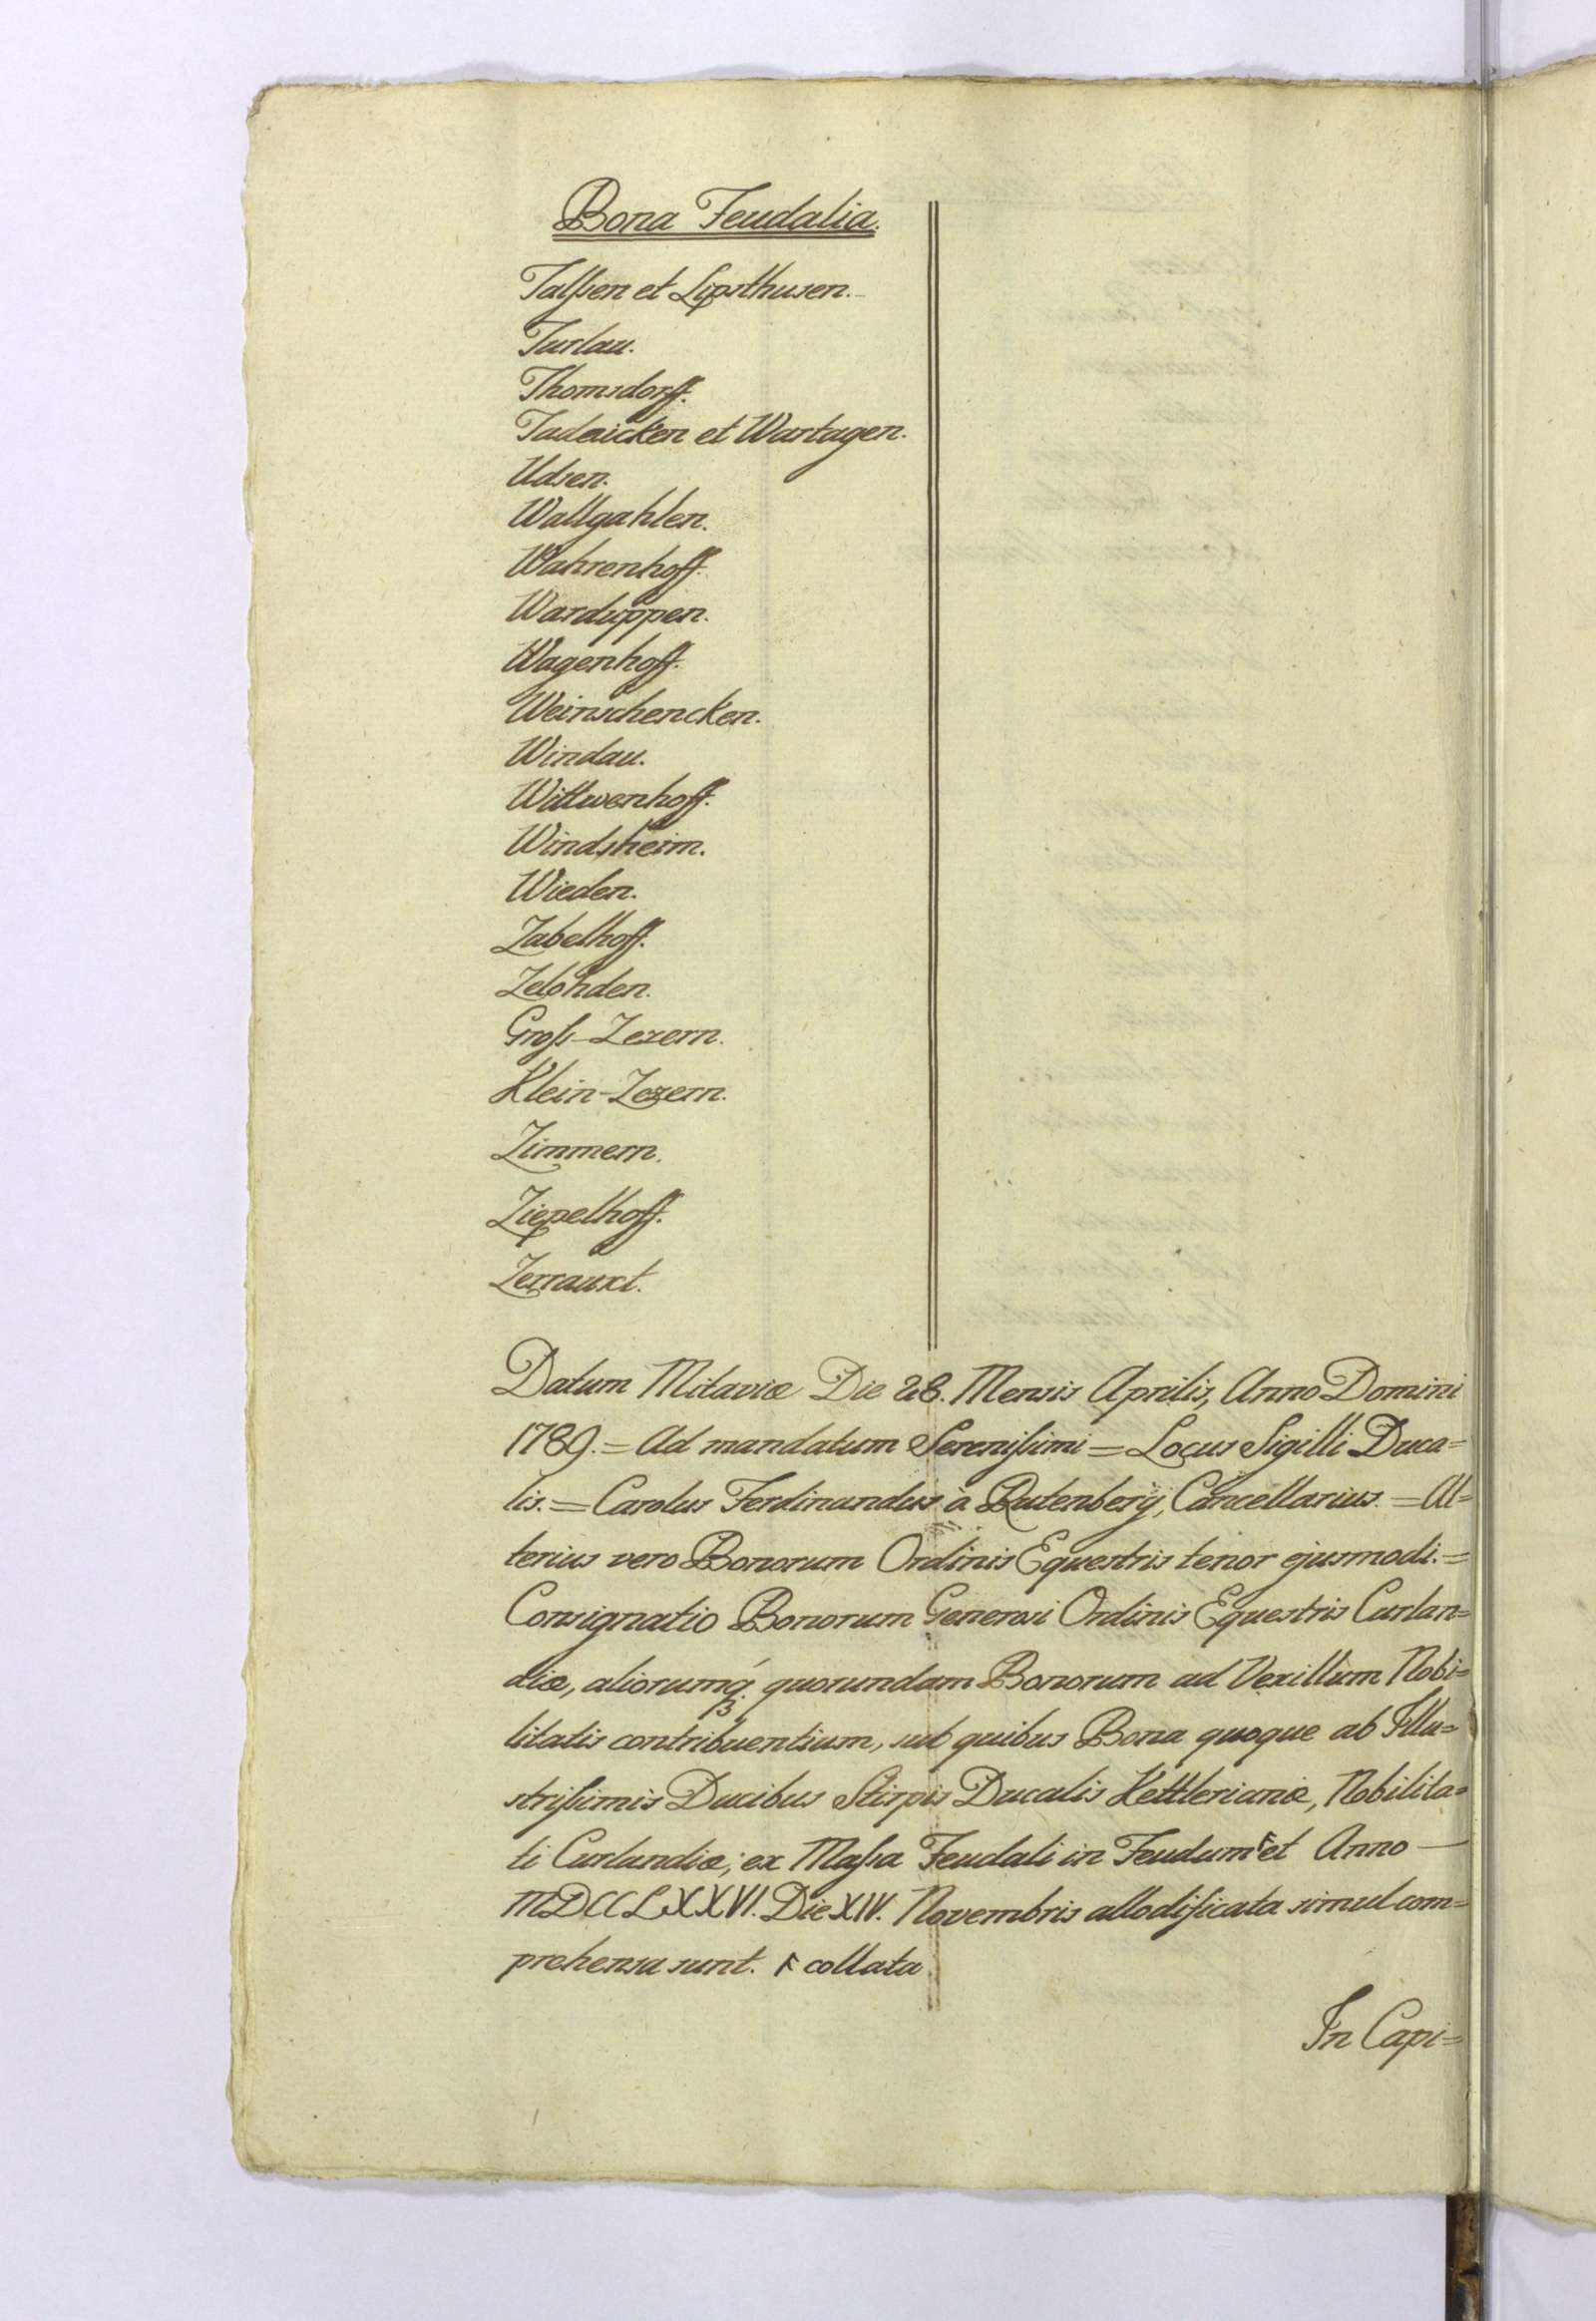 Bona Feudalia.
Talſsen et Lipsthusen.
Turlau.
Thomsdorff.
Tadaicken et Wartagen.
Udsen.
Wallgahlen.
Wahrenhoff.
Warduppen.
Wagenhoff.
Weinschencken.
Windau.
Wittwenhoff.
Windsheim.
Wieden.
Zabelhoff.
Zelohden.
Groſs-Zezern.
Klein-Zezern.
Zimmern.
Ziepelhoff.
Zerrauxt.
Datum Mitaviæ Die 28. Mensis Aprilis, Anno Domini
1789. = Ad mandatum Sereniſsimi = Locus Sigilli Duca=
lis. = Carolus Ferdinandus à Rutenberg, Cancellarius. = Al=
terius vero Bonorum Ordinis Equestris tenor ejusmodi. =
Consignatio Bonorum Generosi Ordinis Equestris Curlan=
diæ, aliorumq́ꝫ quorundam Bonorum ad Vexillum Nobi=
litatis contribuentium, sub quibus Bona quoque ab Illu=
striſsimis Ducibus Stirpis Ducalis Kettlerianæ, Nobilita=
ti Curlandiæ, ex Maſsa Feudali in Feudum ┌ et Anno —
MDCCLXXVI. Die XIV. Novembris allodificata simul com=
prehensa sunt. ┌ collata
In Capi=